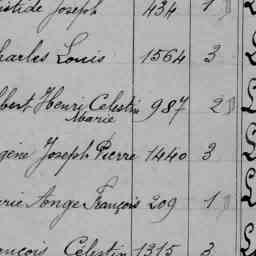 istide Joseph 434 1
harles Louis 1564 3
lbert Henri Celestin 987 2
Marie
gène Joseph Pierre 1440 3
rie Ange François 209 1
ançois Célestin 1315 3